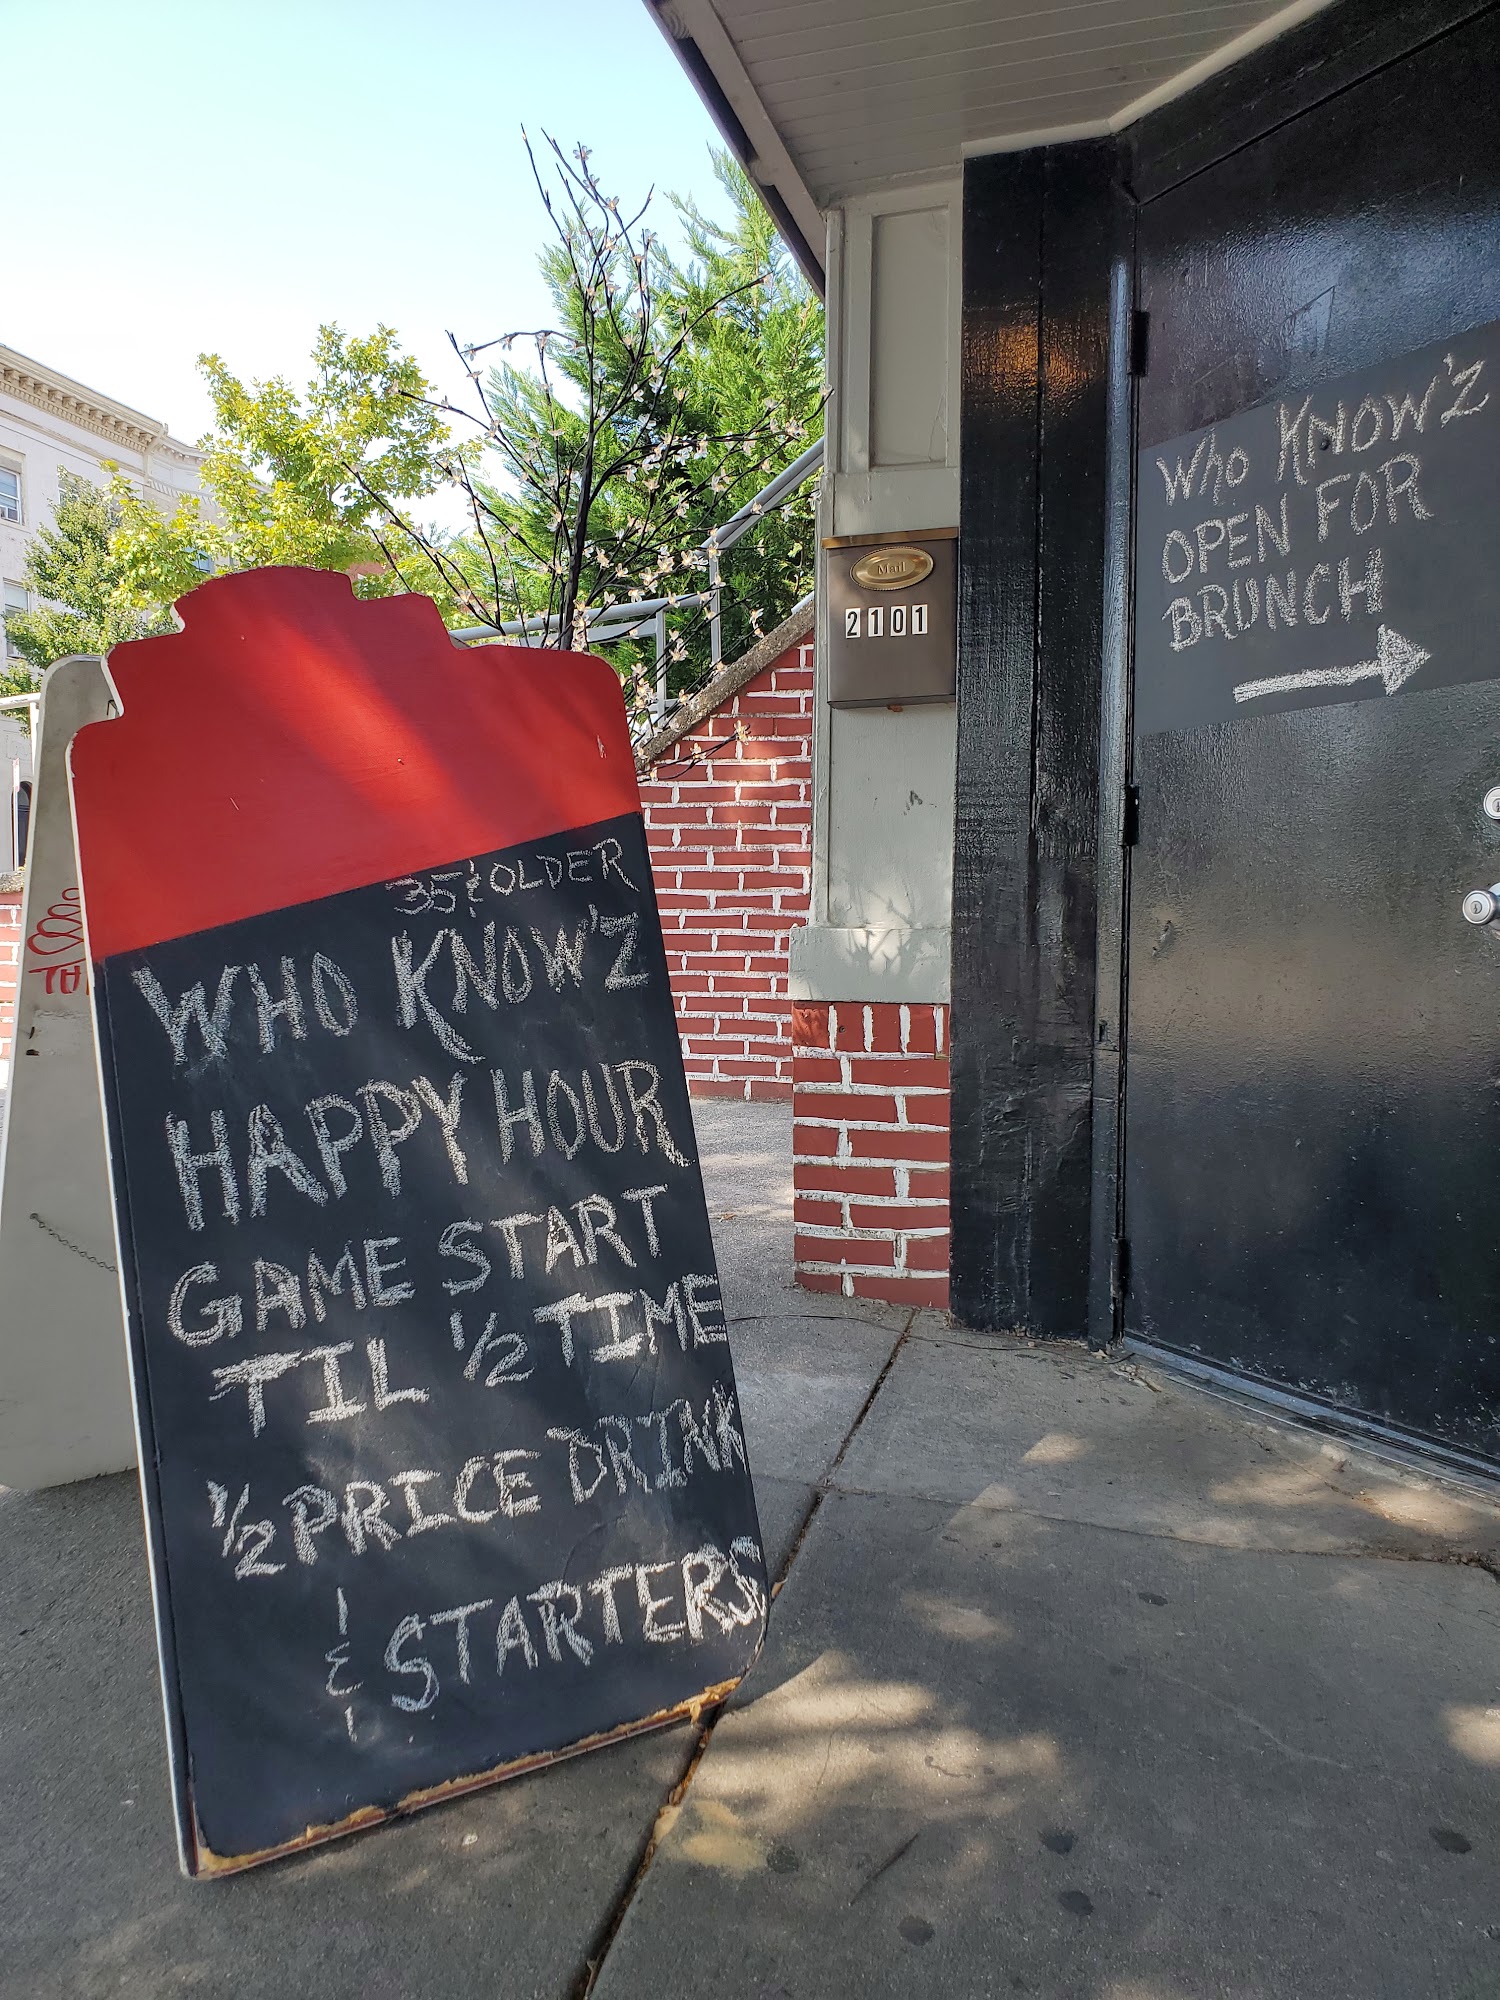 35 & OLDER
WHO KNOW'Z
HAPPY HOUR
GAME START
TIL 1/2 TIME
1/2 PRICE DRINK
& STARTERS
Mail
2101
WHO KNOW'Z
OPEN FOR
BRUNCH